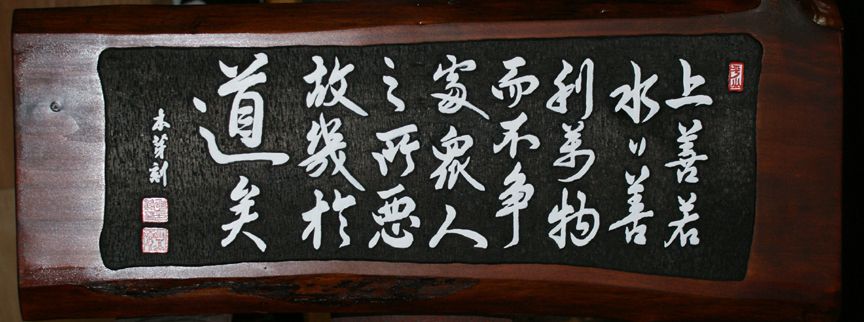 上善若
水〃善
利萬物
而不争
處衆人
之所惡
故幾於
道矣
木芽刻